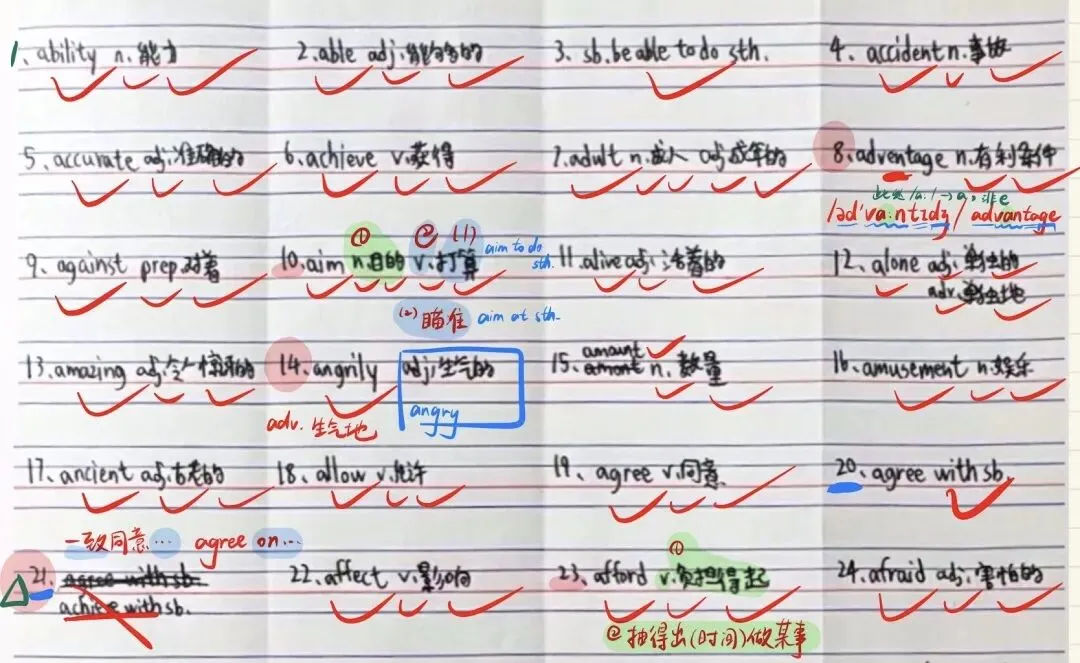 1、ability n.能力 2、able adj.能够的 3、sb.be able to do sth. 4、accident n.事故
5、accurate adj.准确的 6、achieve v.获得 7、adult n.成人 adj.成年的 8、adventage n.有利条件
此处/a:/→a，非e
/əd'va:ntɪdʒ/ advantage
① ② (1) aim to do sth.
9、against prep.对着 10、aim n.目的 v.打算 11、alive adj.活着的 12、alone adj.单独的
adv.单独地
(2) 瞄准 aim at sth.
13、amazing adj.令人惊讶的 14、angrily adj.生气的 15、amount n.数量 16、amusement n.娱乐
adv. 生气地 angry
17、ancient adj.古老的 18、allow v.允许 19、agree v.同意 20、agree with sb.
一致同意… agree on…
①
21、agree with sb. 22、affect v.影响 23、afford v.负担得起 24、afraid adj.害怕的
achieve with sb.
②抽得出(时间)做某事